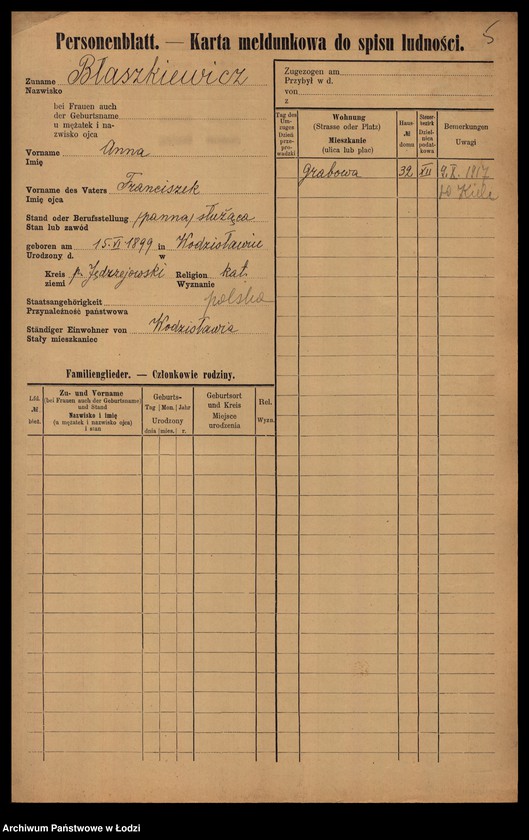 5
Personenblatt. — Karta meldunkowa do spisu ludności.
Zuname Błaszkiewicz
Nazwisko
bei Frauen auch
der Geburtsname
u mężatek i na-
zwisko ojca
Vorname Anna
Imię
Vorname des Vaters Franciszek
Imię ojca
Stand oder Berufsstellung (panna) służąca
Stan lub zawód
geboren am 15.VI 1899 in Wodzisławiu
Urodzony d. w
Kreis p. Jędrzejowski Religion kat.
ziemi Wyznanie
Staatsangehörigkeit polska
Przynależność państwowa
Ständiger Einwohner von Wodzisławia
Stały mieszkaniec
Zugezogen am
Przybył w d.
von
z
Tag des
Um-
zuges
Dzień
prze-
pro-
wadzki
Wohnung
(Strasse oder Platz)
Mieszkanie
(ulica lub plac)
Haus-
№
domu
Steuer-
bezirk
Dziel-
nica
podat-
kowa
Bemerkungen
Uwagi
Grabowa 32 XII 9.X. 1917
do Kielc
Familienglieder. — Członkowie rodziny.
Lfd.
№
bież.
Zu- und Vorname
(bei Frauen auch der Geburtsname)
und Stand
Nazwisko i imię
(u mężatek i nazwisko ojca)
i stan
Geburts-
Tag Mon. Jahr
Urodzony
dnia mies. r.
Geburtsort
und Kreis
Miejsce
urodzenia
Rel.
Wyzn.
Archiwum Państwowe w Łodzi